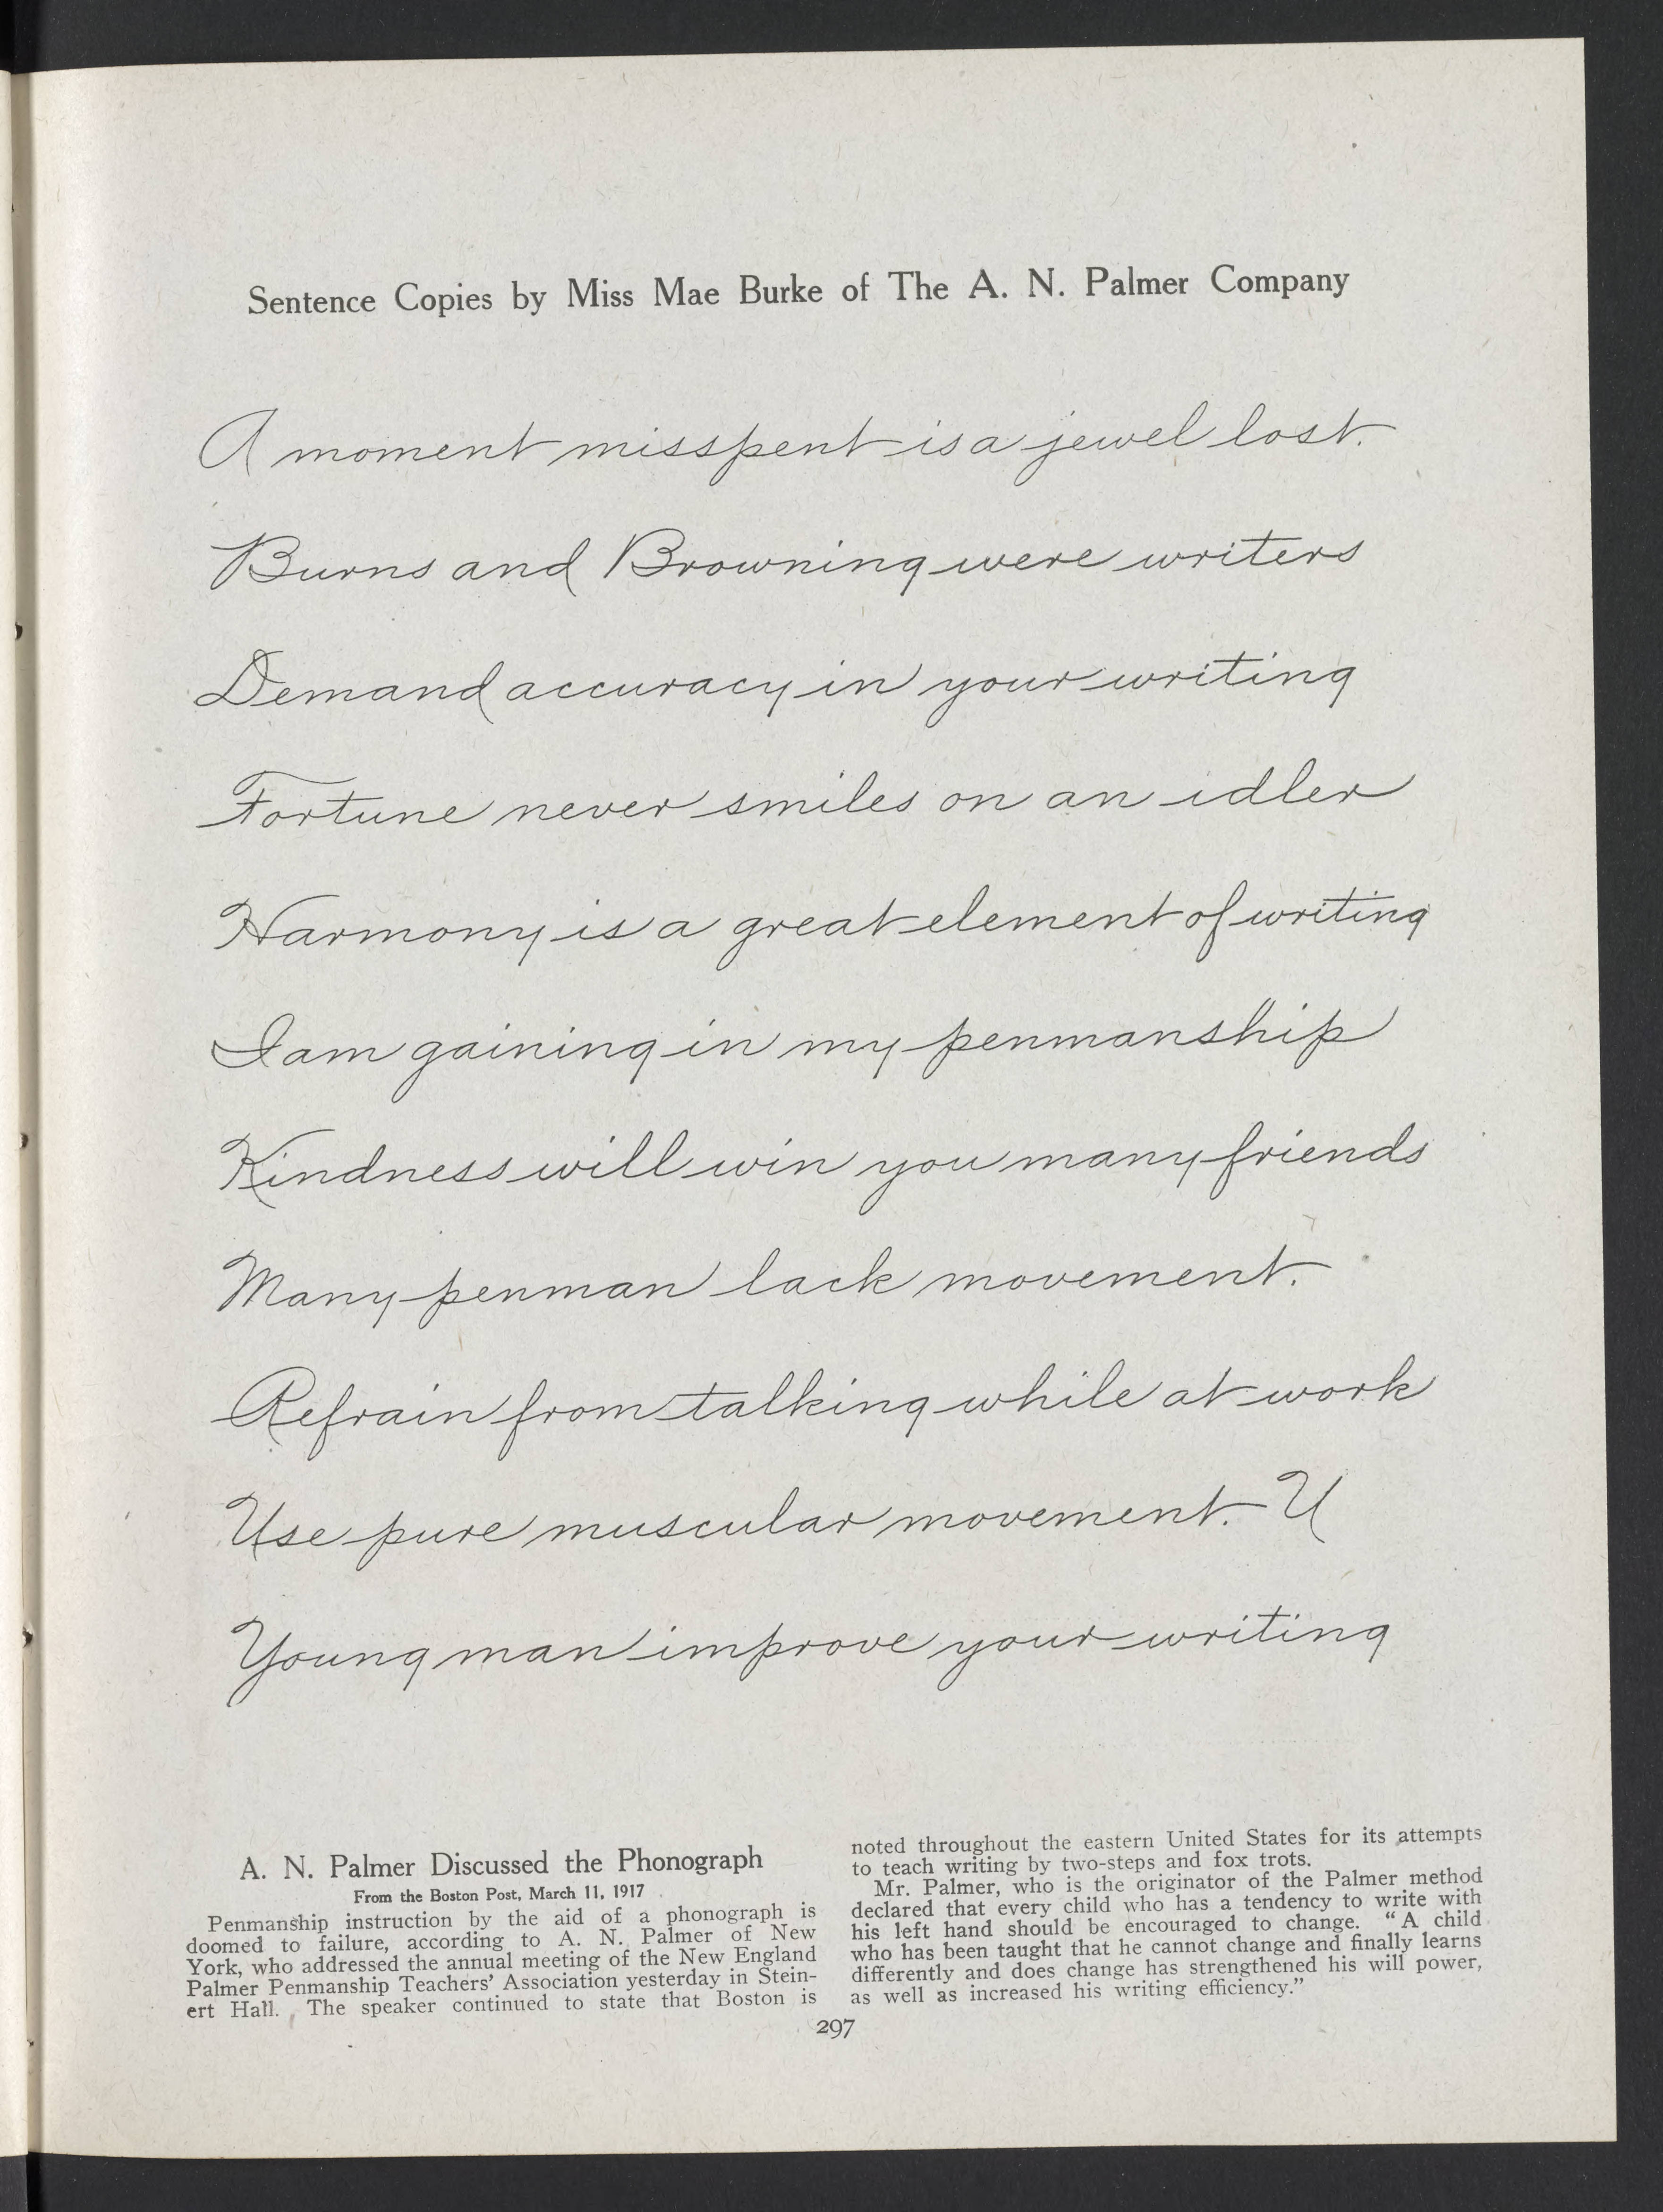 Sentence Copies by Miss Mae Burke of The A. N. Palmer Company
A moment misspent is a jewel lost.
Burns and Browning were writers
Demand accuracy in your writing
Fortune never smiles on an idler
Harmony is a great element of writing
I am gaining in my penmanship
Kindness will win you many friends
Many penman lack movement.
Refrain from talking while at work
Use pure muscular movement. U
Young man improve your writing
A. N. Palmer Discussed the Phonograph
From the Boston Post, March 11, 1917
Penmanship instruction by the aid of a phonograph is
doomed to failure, according to A. N. Palmer of New
York, who addressed the annual meeting of the New England
Palmer Penmanship Teachers' Association yesterday in Stein-
ert Hall. The speaker continued to state that Boston is
noted throughout the eastern United States for its attempts
to teach writing by two-steps and fox trots.
Mr. Palmer, who is the originator of the Palmer method
declared that every child who has a tendency to write with
his left hand should be encouraged to change. "A child
who has been taught that he cannot change and finally learns
differently and does change has strengthened his will power,
as well as increased his writing efficiency."
297